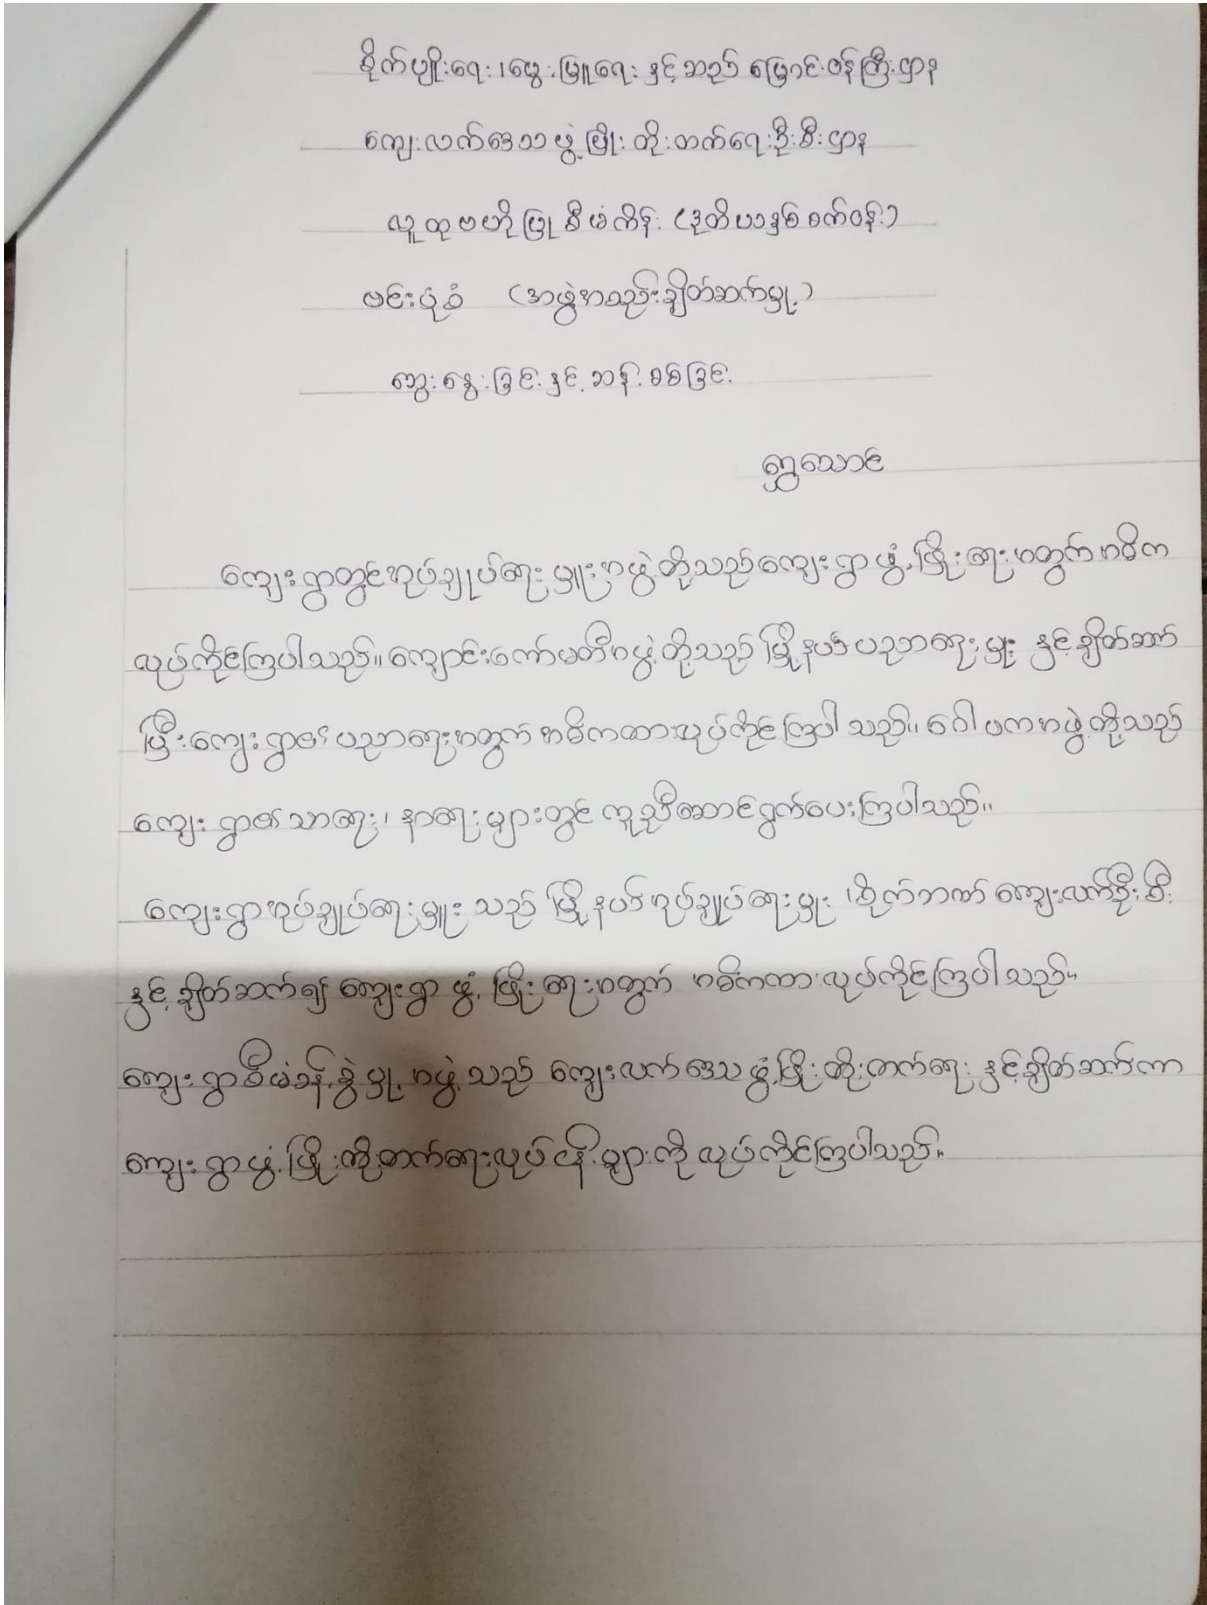 စိုက်ပျိုးရေး၊မွေးမြူရေး နှင့်ဆည်မြောင်းဝန်ကြီးဌာန
ကျေးလက်ဒေသဖွံ့ဖြိုးတိုးတက်ရေးဦးစီးဌာန
လူထုဗဟိုပြုစီမံကိန်း (ဒုတိယနှစ်စက်ဝန်း)
ဗင်းပုံစံ (အဖွဲ့အစည်းချိတ်ဆက်မှု)
ဆွေးနွေးခြင်းနှင့်ဆန်းစစ်ခြင်း
ရွှေသောင်
ကျေးရွာတွင်အုပ်ချုပ်ရေးမှူးအဖွဲ့တို့သည်ကျေးရွာဖွံ့ဖြိုးရေးအတွက်အဓိက
လုပ်ကိုင်ကြပါသည်။ကျောင်းကော်မတီအဖွဲ့တို့သည်မြို့နယ်ပညာရေးမှူး နှင့်ချိတ်ဆက်
ပြီးကျေးရွာ၏ပညာရေးအတွက်အဓိကထားလုပ်ကိုင်ကြပါသည်။ဂေါပကအဖွဲ့တို့သည်
ကျေးရွာ၏သာရေး၊နာရေးများတွင်ကူညီဆောင်ရွက်ပေးကြပါသည်။
ကျေးရွာအုပ်ချုပ်ရေးမှူးသည်မြို့နယ်အုပ်ချုပ်ရေးမှူး၊စိုက်ဘဏ်ကျေးလက်ဦးစီး
နှင့်ချိတ်ဆက်၍ကျေးရွာဖွံ့ဖြိုးရေးအတွက်အဓိကထားလုပ်ကိုင်ကြပါသည်။
ကျေးရွာစီမံခန့်ခွဲမှုအဖွဲ့သည်ကျေးလက်ဒေသဖွံ့ဖြိုးတိုးတက်ရေးနှင့်ချိတ်ဆက်ကာ
ကျေးရွာဖွံ့ဖြိုးတိုးတက်ရေးလုပ်ငန်းများကိုလုပ်ကိုင်ကြပါသည်။